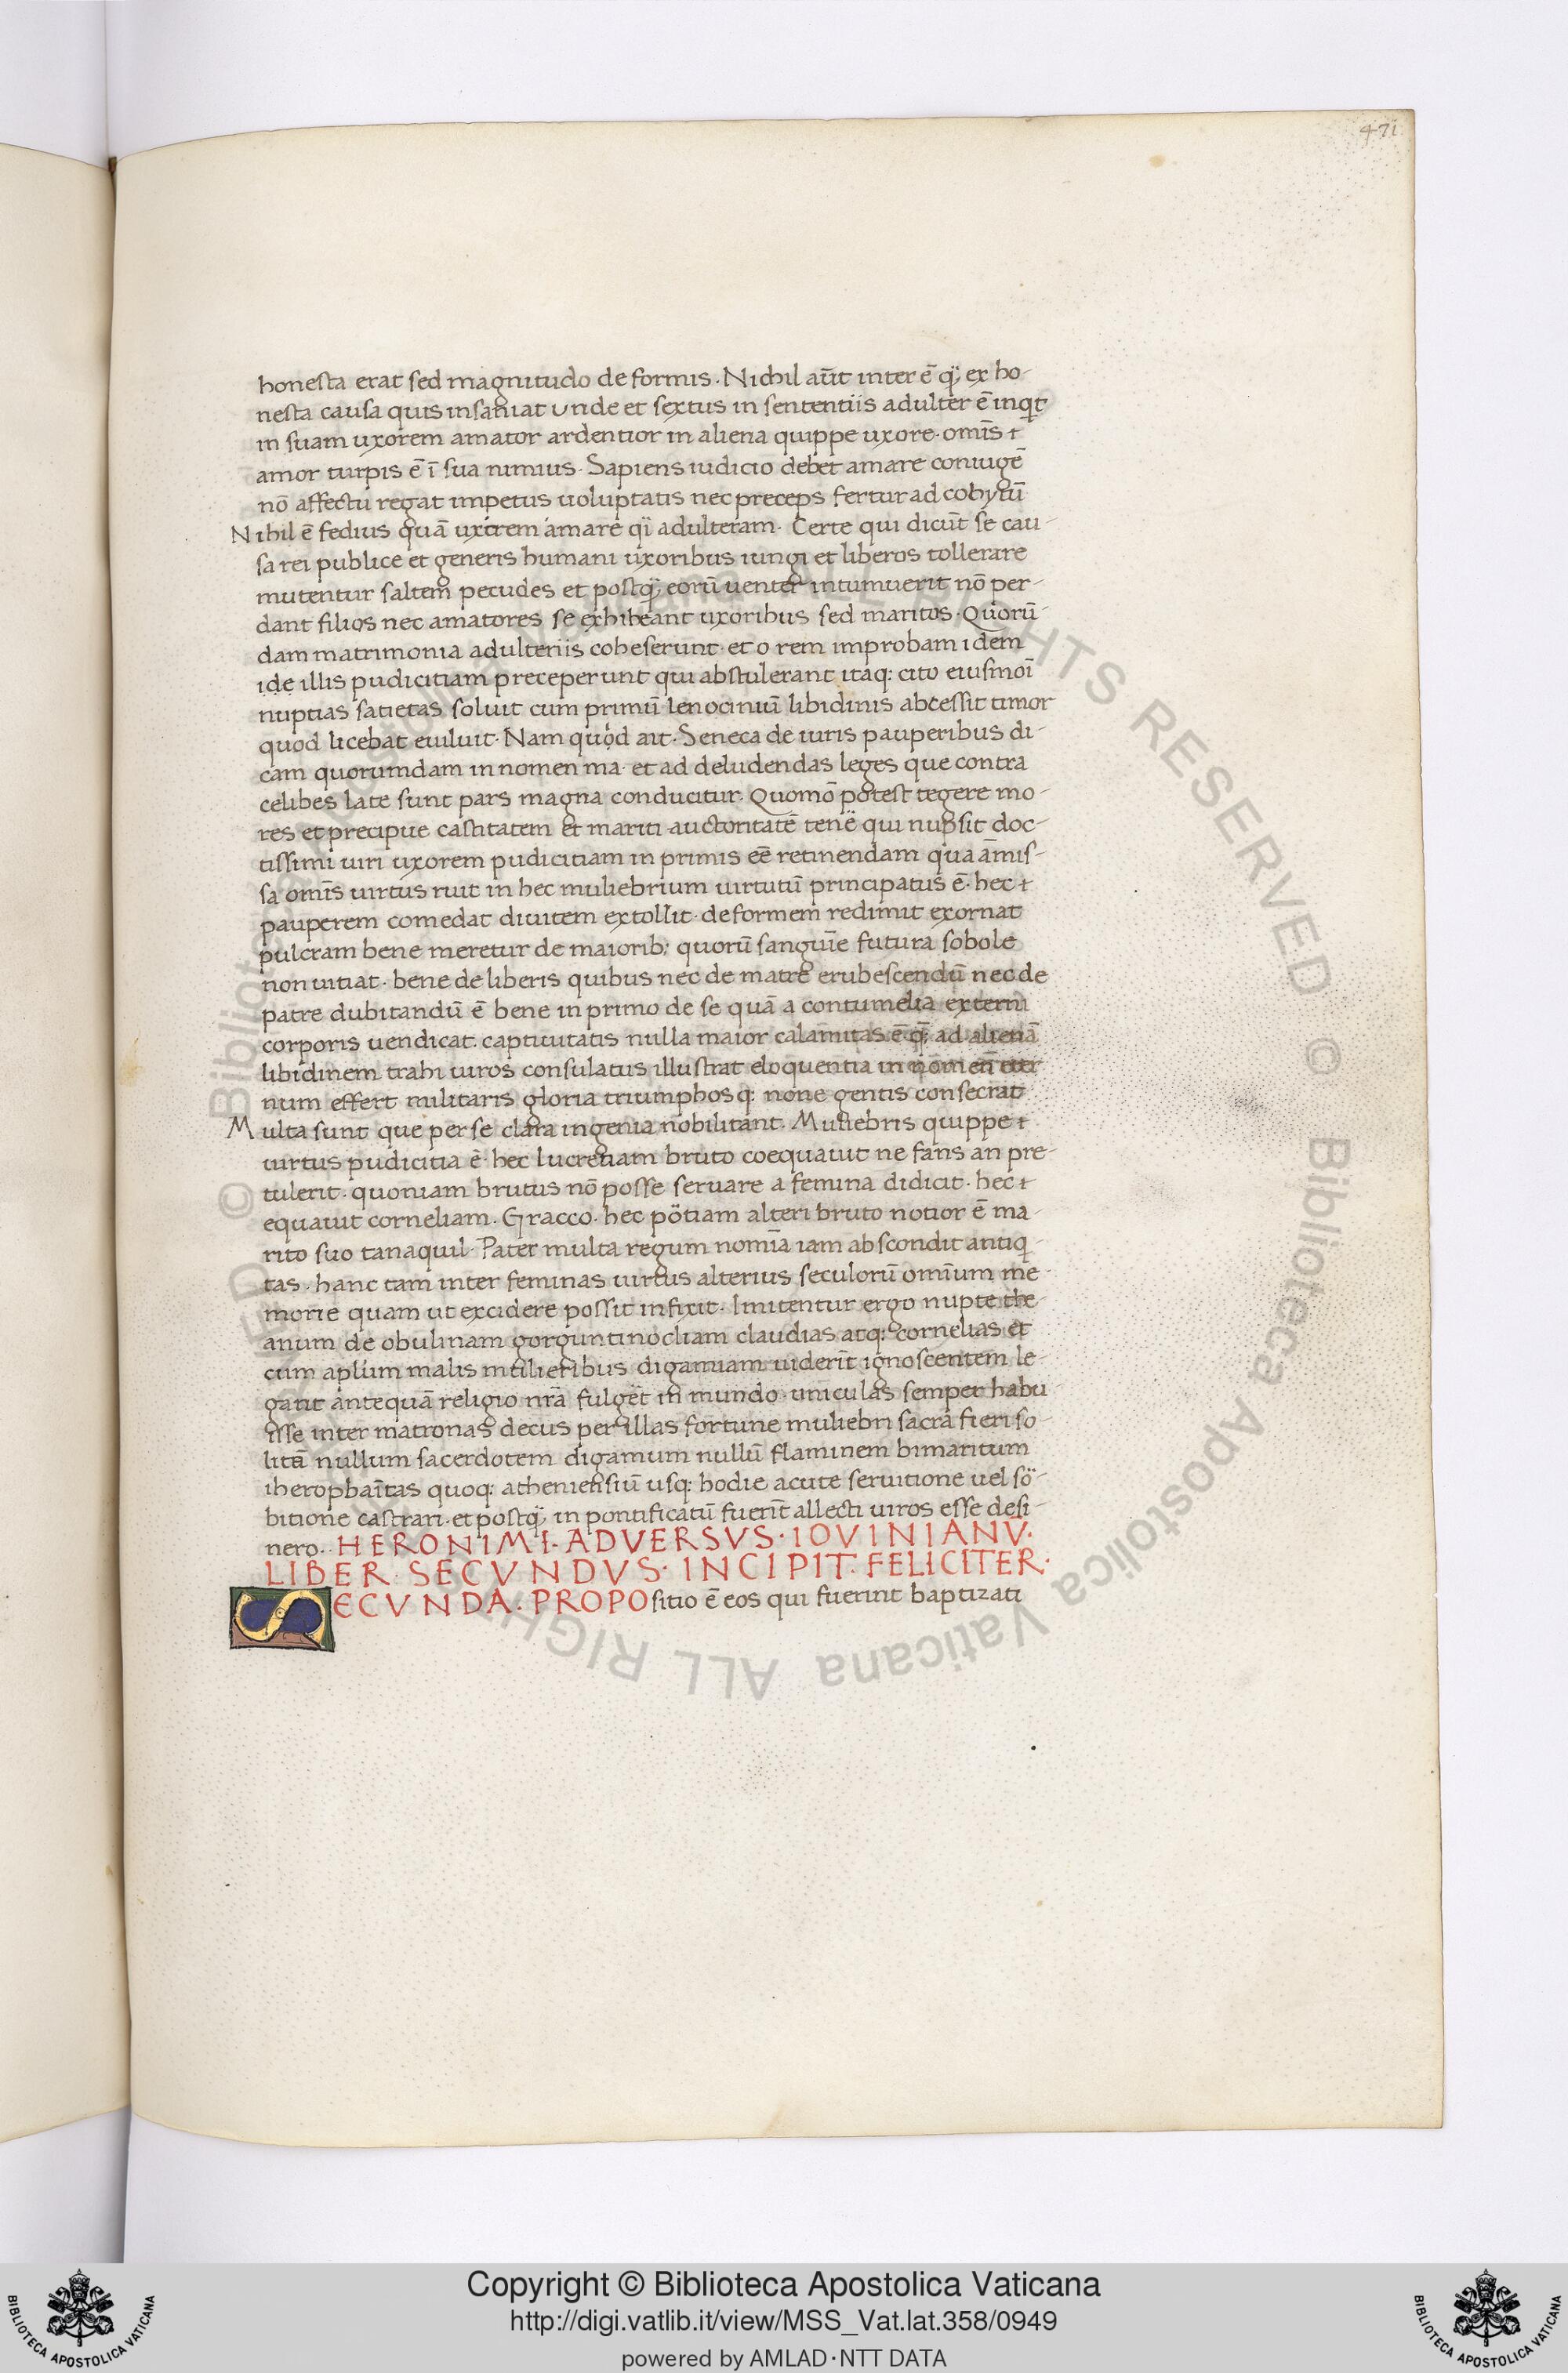 471
honesta erat sed magnitudo deformis. Nichil aūt inter ē q̈; ex ho-
nesta causa quis insaniat unde et sextus in sententiis adulter ē inqt
in suam uxorem amator ardentior in aliena quippe uxore. omīs
amor turpis ē ī sua nimius. Sapiens iudicio debet amare coniugē
nō affectu regat impetus uoluptatis nec preceps fertur ad cohytū
Nihil ē fedius quā uxorem amare qï adulteram. Certe qui dicūt se cau-
sa rei publice et generis humani uxoribus iungi et liberos tollerare
mutentur saltem pecudes et postq̈; eorū uenter intumuerit nō per-
dant filios nec amatores se exhibeant uxoribus sed maritos. Quorū-
dam matrimonia adulteriis coheserunt. et o rem improbam idem
ide illis pudicitiam preceperunt qui abstulerant itaq: cito eiusmoī
nuptias satietas soluit cum primū lenociniū libidinis abcessit timor
quod licebat euiluit. Nam quod ait. Seneca de iuris pauperibus di-
cam quorumdam in nomen ma. et ad deludendas leges que contra
celibes late sunt pars magna conducitur. Quomō potest regere mo-
res et precipue castitatem et mariti auctoritatē tenë qui nupsit doc-
tissimi uiri uxorem pudicitiam in primis eē retinendam qua āmis-
sa omīs uirtus ruit in hec muliebrium uirtutū principatus ē. hec
pauperem comedat diuitem extollit. deformem redimit exornat
pulcram bene meretur de maiorib; quorū sanguīe futura sobole
non uitiat. bene de liberis quibus nec de matre erubescendū nec de
patre dubitandū ē bene in primo de se quā a contumelia externi
corporis uendicat. captiuitatis nulla maior calamitas ē q̈; ad alienā
libidinem trahi uiros consulatus illustrat eloquentia in nomen eter
num effert militaris gloria triumphosq: none gentis consecrat
Multa sunt que per se clara ingenia nobilitant. Muliebris quippe
uirtus pudicitia ē. hec lucretiam bruto coequauit ne fans an pre-
tulerit. quoniam brutus nō posse seruare a femina didicit. hec
equauit corneliam. Gracco. hec pötiam alteri bruto notior ē ma-
rito suo tanaquil. Pater multa regum nomīa iam abscondit antiq-
tas. hanc tam inter feminas uirtus alterius seculorū omīum me-
morie quam ut excidere possit infixit. Imitentur ergo nupte the-
anum de obulinam gorguntinocliam claudias atq: cornelias et
cum aplīum malis mulieribus digamiam uiderīt ignoscentem le-
gant antequā religio nrā fulgët in mundo. uniculas semper habu
isse inter matronas decus per illas fortune muliebri sacrā fieri so-
litū nullum sacerdotem digamum nullū flaminem bimaritum
iherophantas quoq: atheniensiū usq: hodie acute seruitione uel sö-
bitione castrari. et postq̈; in pontificatū fuerīt allecti uiros esse desi-
nero. HERONIMI. ADVERSVS. IOVINIANV.
LIBER. SECVNDVS. INCIPIT. FELICITER.
SECVNDA. PROPOsitio ē eos qui fuerint baptizati
Copyright © Biblioteca Apostolica Vaticana
http://digi.vatlib.it/view/MSS_Vat.lat.358/0949
powered by AMLAD·NTT DATA
BIBLIOTECA APOSTOLICA VATICANA
BIBLIOTECA APOSTOLICA VATICANA
© Biblioteca Apostolica Vaticana ALL RIGHTS RESERVED © Biblioteca Apostolica Vaticana ALL RIGHTS RESERVED